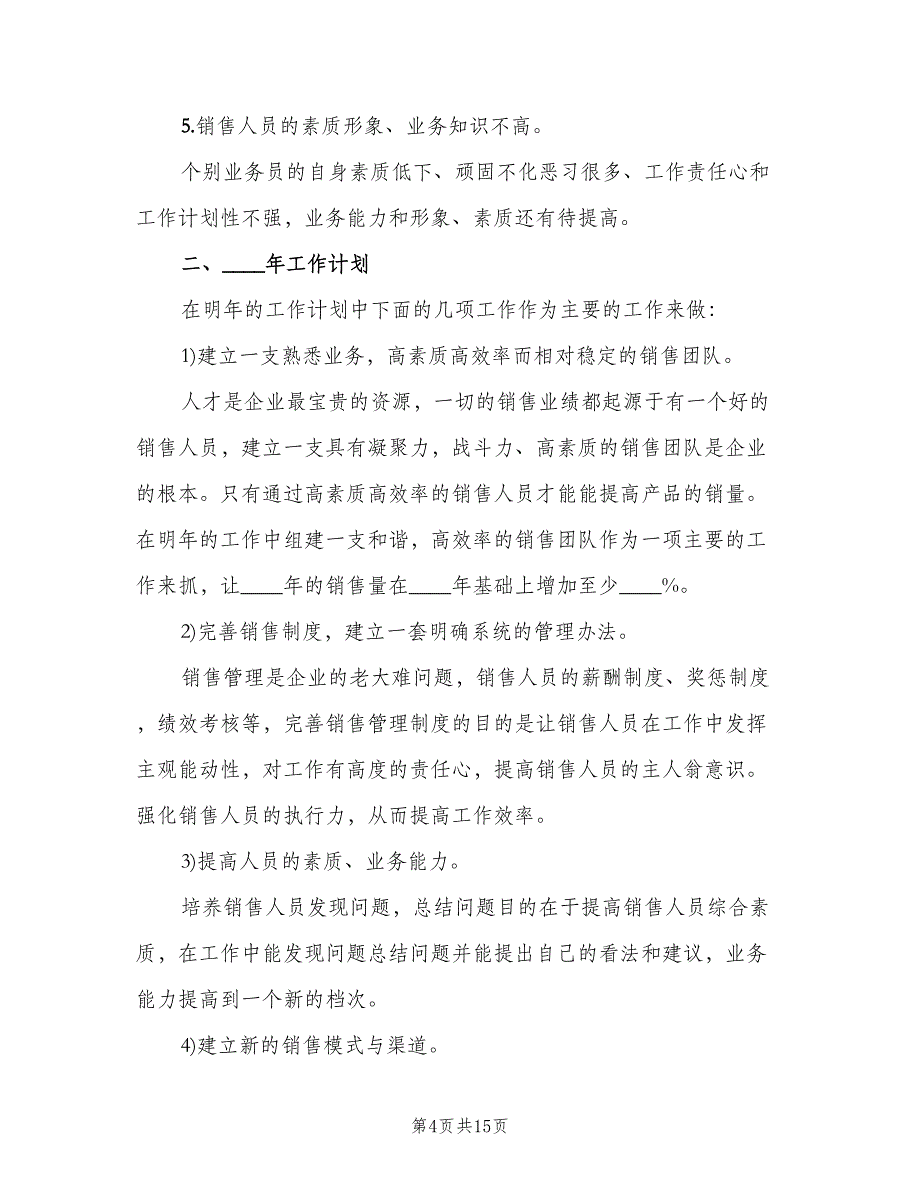 5.销售人员的素质形象、业务知识不高。
个别业务员的自身素质低下、顽固不化恶习很多、工作责任心和
工作计划性不强，业务能力和形象、素质还有待提高。
二、____年工作计划
在明年的工作计划中下面的几项工作作为主要的工作来做：
1)建立一支熟悉业务，高素质高效率而相对稳定的销售团队。
人才是企业最宝贵的资源，一切的销售业绩都起源于有一个好的
销售人员，建立一支具有凝聚力，战斗力、高素质的销售团队是企业
的根本。只有通过高素质高效率的销售人员才能能提高产品的销量。
在明年的工作中组建一支和谐，高效率的销售团队作为一项主要的工
作来抓，让____年的销售量在____年基础上增加至少____%。
2)完善销售制度，建立一套明确系统的管理办法。
销售管理是企业的老大难问题，销售人员的薪酬制度、奖惩制度
，绩效考核等，完善销售管理制度的目的是让销售人员在工作中发挥
主观能动性，对工作有高度的责任心，提高销售人员的主人翁意识。
强化销售人员的执行力，从而提高工作效率。
3)提高人员的素质、业务能力。
培养销售人员发现问题，总结问题目的在于提高销售人员综合素
质，在工作中能发现问题总结问题并能提出自己的看法和建议，业务
能力提高到一个新的档次。
4)建立新的销售模式与渠道。
第4页共15页